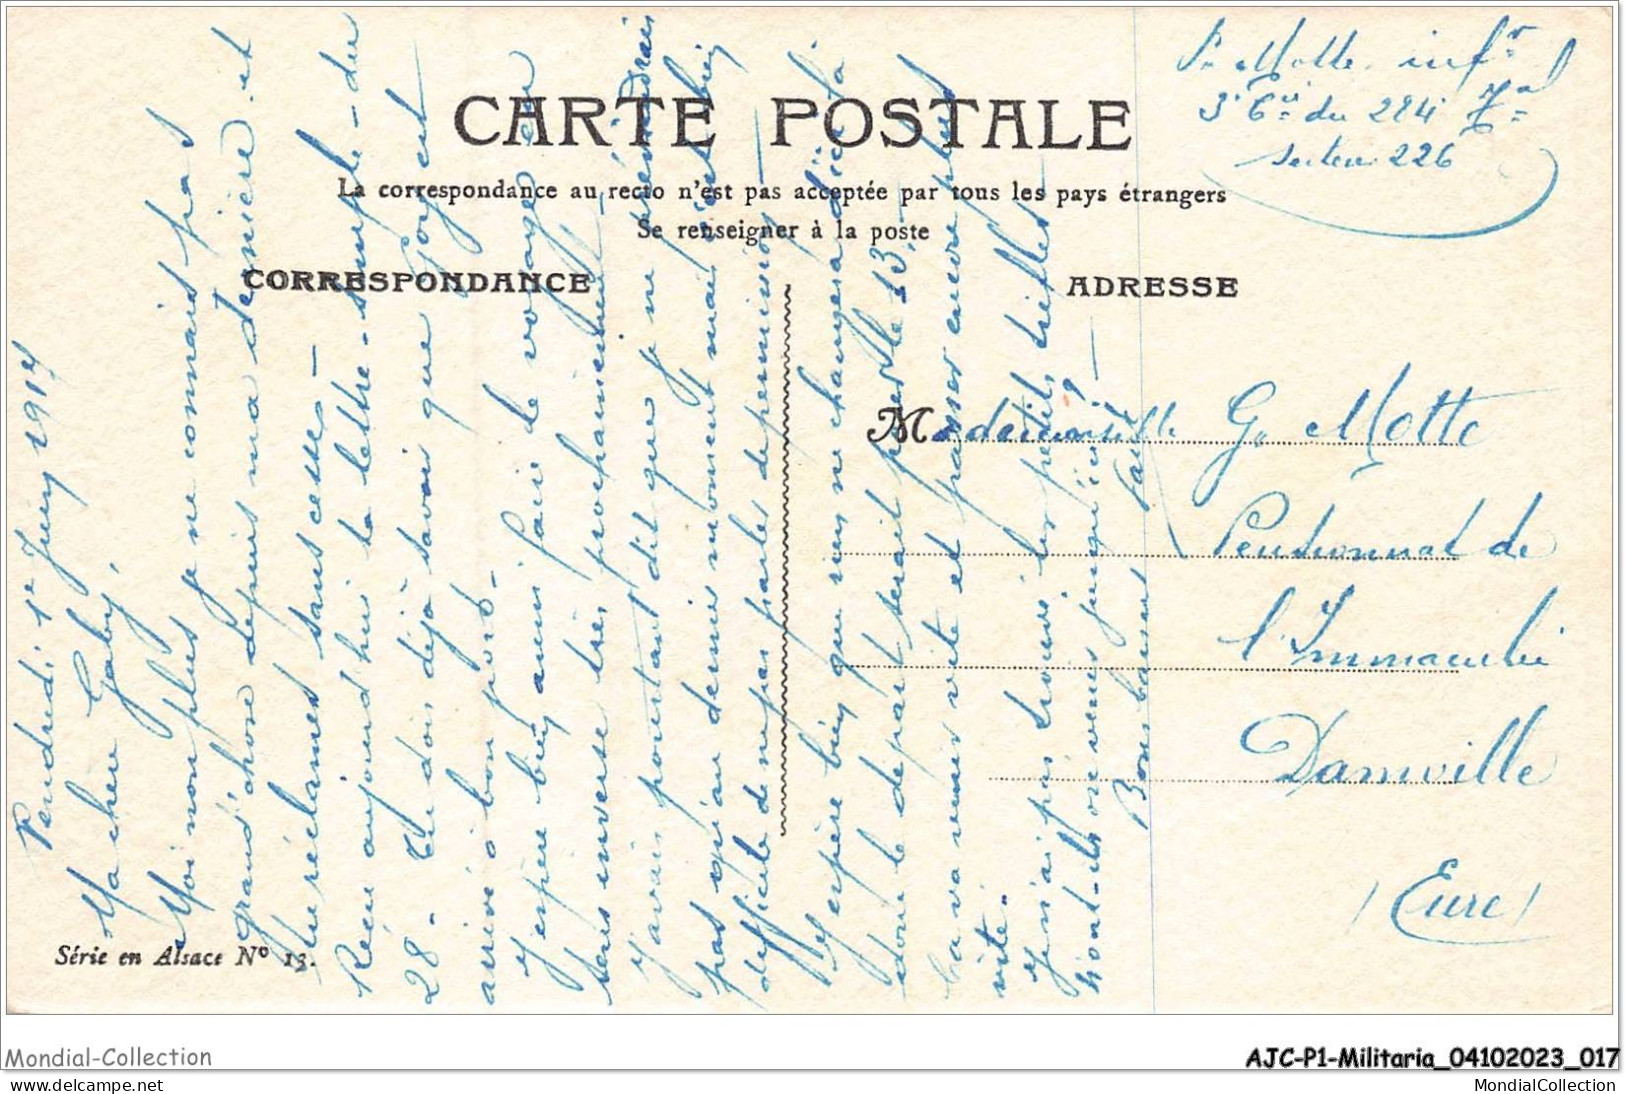 P. Motte. inf.r
3e Cie du 284e
secteur 226
CARTE POSTALE
La correspondance au recto n'est pas acceptée par tous les pays étrangers
Se renseigner à la poste
CORRESPONDANCE
ADRESSE
Mademoiselle G. Motte
Pensionnat de
l'Immaculée
Damville
(Eure)
Vendredi 1er Juin 1917
Ma chère Gaby,
Moi non plus je ne connais pas
grand'chose depuis ma dernière et
tu réclames sans cesse —
Reçu aujourd'hui ta lettre - simple - du
28 - Tu dois déjà savoir que est
arrivé à bon port -
J'espère bien aussi faire le voyage en
sens inverse très prochainement —
J'avais pourtant dit que je ne
pas qu'au dernier moment mais c'est bien
difficile de ne pas parler de permission
J'espère bien que rien ne changera d'ici là
donc le départ serait pour le 13,
ça va venir vite et passer encore plus
vite.
Je n'ai pas trouvé les petits trèfles
sont-ils parvenus jusqu'ici ? —
Bons baisers
Paul
Série en Alsace No 13.
Mondial-Collection
AJC-P1-Militaria_04102023_017
www.delcampe.net
MondialCollection